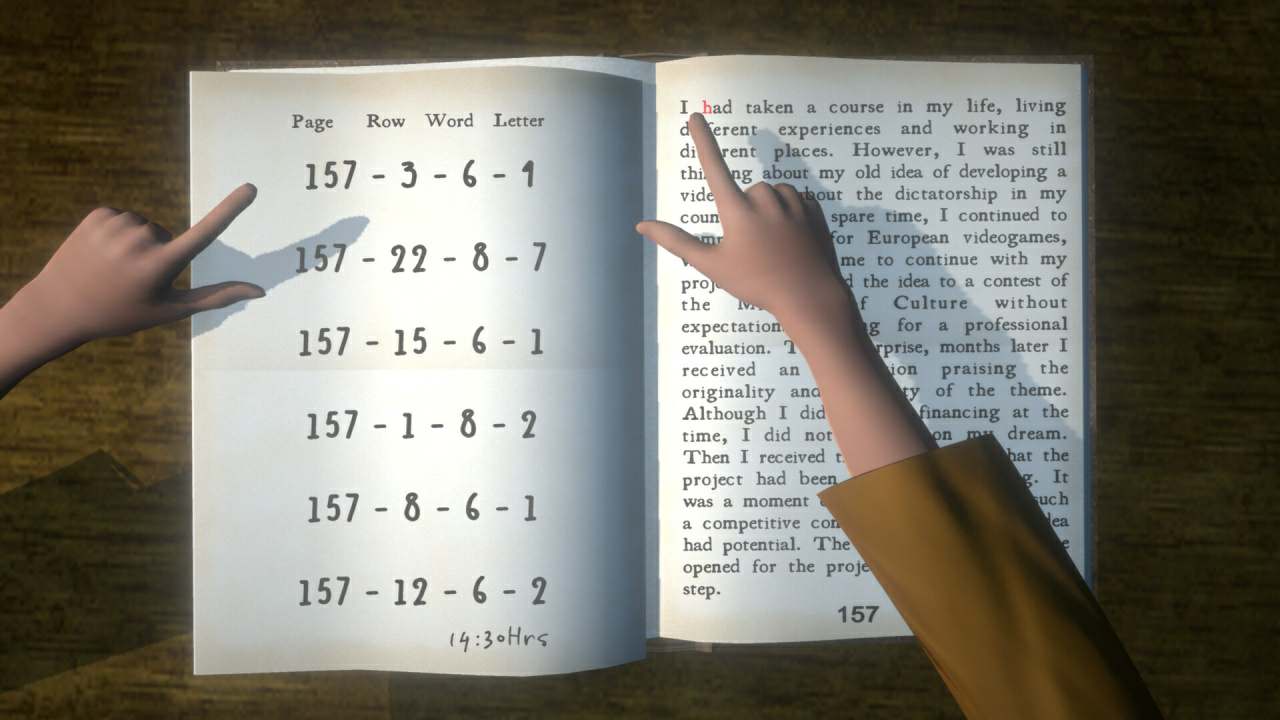 Page Row Word Letter
157 - 3 - 6 - 1
157 - 22 - 8 - 7
157 - 15 - 6 - 1
157 - 1 - 8 - 2
157 - 8 - 6 - 1
157 - 12 - 6 - 2
14:30Hrs
I had taken a course in my life, living
experiences and working in
places. However, I was still
about my old idea of developing a
the dictatorship in my
spare time, I continued to
for European videogames,
me to continue with my
the idea to a contest of
the Culture without
for a professional
evaluation. months later I
received an praising the
originality and of the theme.
Although I did financing at the
time, I did not on my dream.
Then I received that the
project had been It
was a moment such
a competitive
had potential. The
opened for the
step.
157